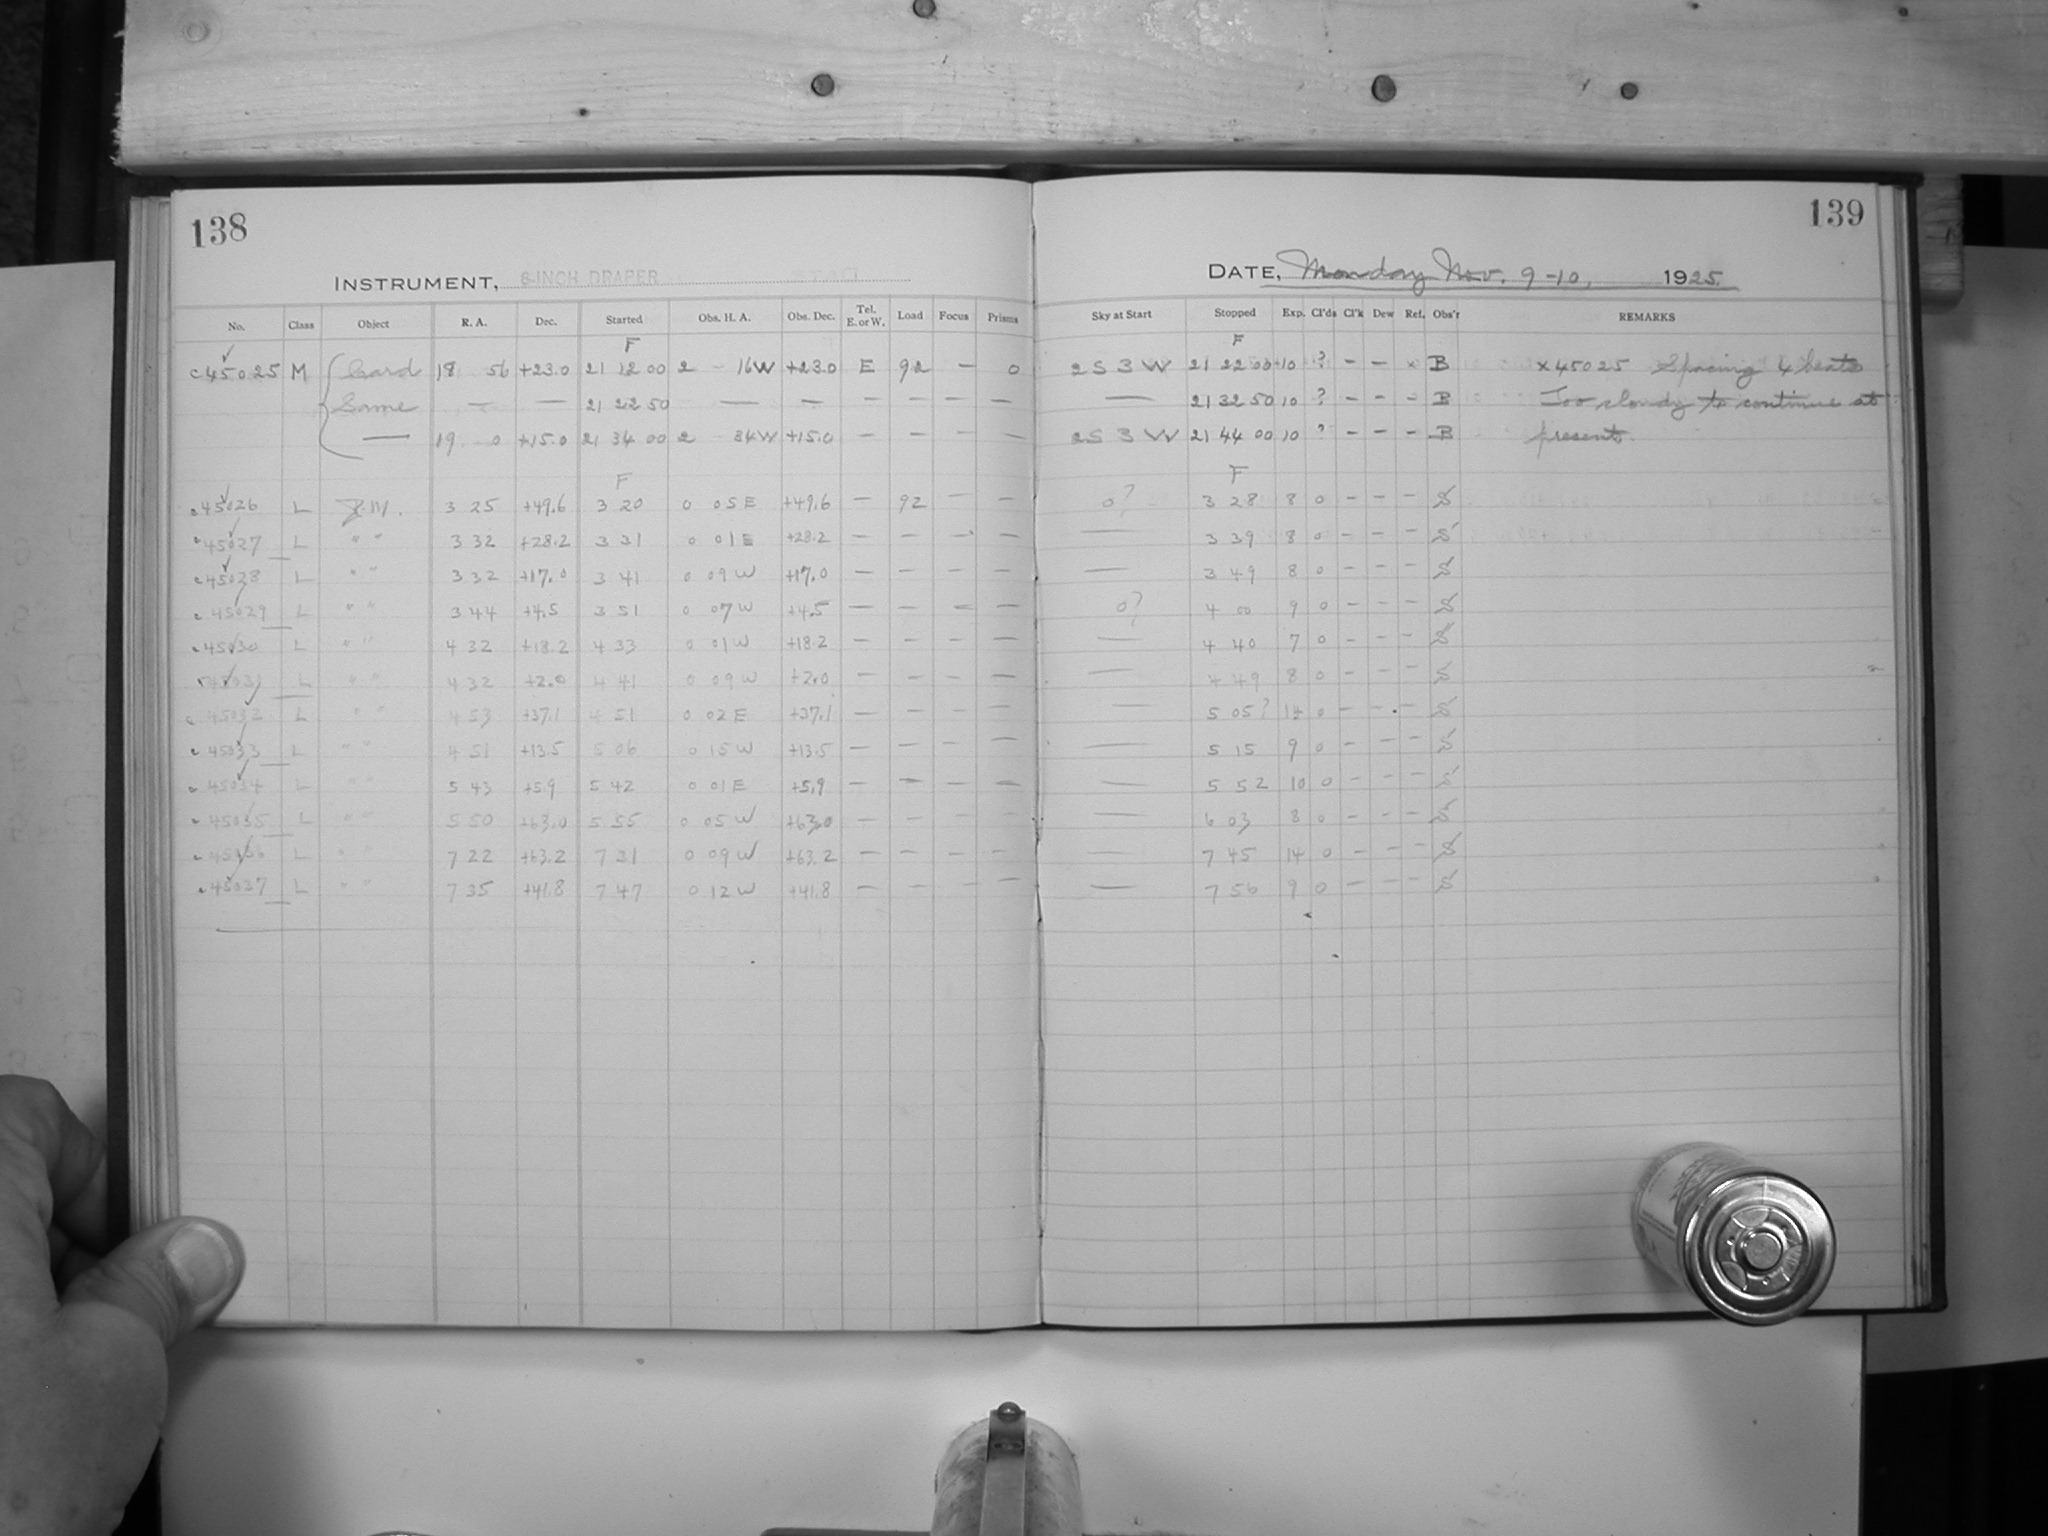 138
139
INSTRUMENT, 8-INCH DRAPER
DATE, Monday Nov. 9-10, 1925.
No. Class Object R. A. Dec. Started Obs. H. A. Obs. Dec. Tel. E. or W. Load Focus Prisms Sky at Start Stopped Exp. Cl'ds Cl'k Dew Ref. Obs'r REMARKS
F F
c45025 M 18 56 +23.0 21 12 00 2 16W +23.0 E 92 — 0 2S 3W 21 22 00 10 ? – – B x45025 Spacing 4 beats
Same — — 21 22 50 — — — — — — — 21 32 50 10 ? – – – B Too cloudy to continue at
— 19 0 +15.0 21 34 00 2 34W +15.0 — — — — 2S 3W 21 44 00 10 ? – – – B present.
F F
c45026 L 3 25 +49.6 3 20 0 05E +49.6 — 92 — — 0? 3 28 8 0 – – – S
c45027 L " " 3 32 +28.2 3 31 0 01E +28.2 — — — — — 3 39 8 0 – – – S
c45028 L " " 3 32 +17.0 3 41 0 09W +17.0 — — — — — 3 49 8 0 – – – S
c45029 L " " 3 44 +4.5 3 51 0 07W +4.5 — — — — 0? 4 00 9 0 – – – S
c45030 L " " 4 32 +18.2 4 33 0 01W +18.2 — — — — — 4 40 7 0 – – – S
c45031 L " " 4 32 +2.0 4 41 0 09W +2.0 — — — — — 4 49 8 0 – – – S
c45032 L " " 4 53 +37.1 4 51 0 02E +37.1 — — — — — 5 05? 14 0 – – – S
c45033 L " " 4 51 +13.5 5 06 0 15W +13.5 — — — — — 5 15 9 0 – – – S
c45034 L " " 5 43 +5.9 5 42 0 01E +5.9 — — — — — 5 52 10 0 – – – S
c45035 L " " 5 50 +63.0 5 55 0 05W +63.0 — — — — — 6 03 8 0 – – – S
c45036 L " " 7 22 +63.2 7 31 0 09W +63.2 — — — — — 7 45 14 0 – – – S
c45037 L " " 7 35 +41.8 7 47 0 12W +41.8 — — — — — 7 56 9 0 – – – S